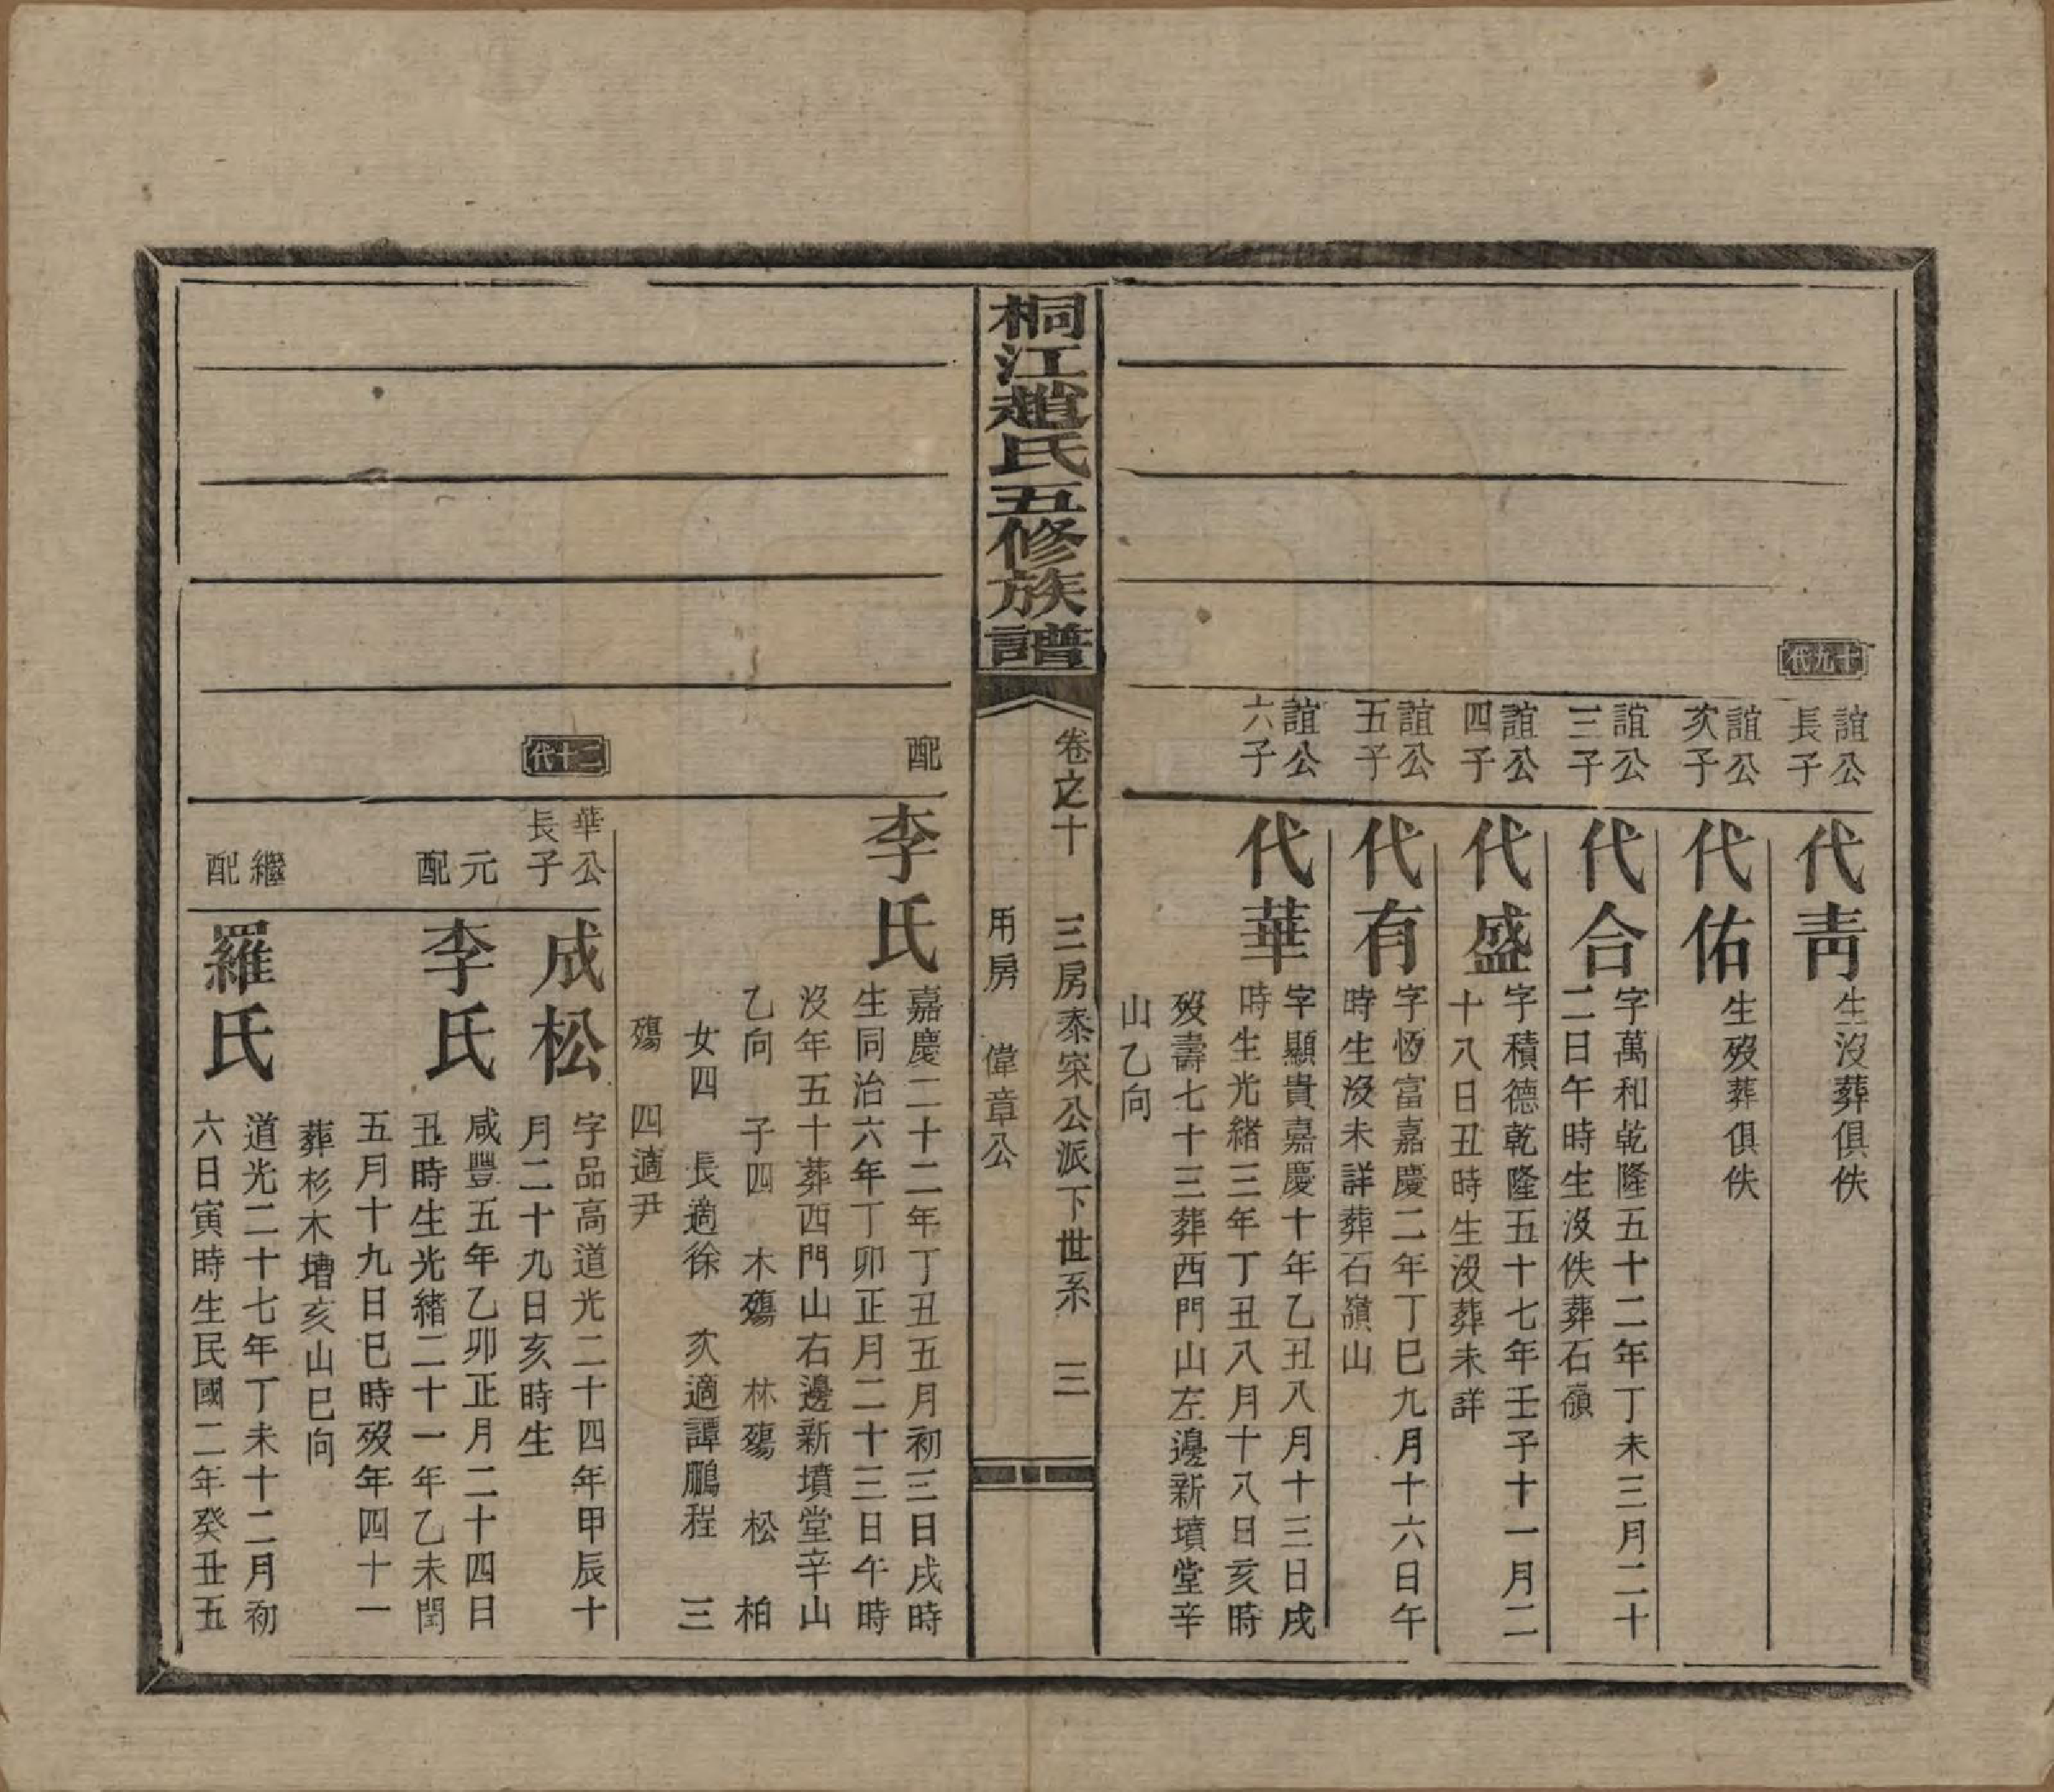 十九代
誼公
長子
代青
生沒葬俱佚
誼公
次子
代佑
生歿葬俱佚
誼公
三子
代合
字萬和乾隆五十二年丁未三月二十
二日午時生沒佚葬石嶺
誼公
四子
代盛
字積德乾隆五十七年壬子十一月二
十八日丑時生沒葬未詳
誼公
五子
代有
字恆富嘉慶二年丁巳九月十六日午
時生沒未詳葬石嶺山
誼公
六子
代華
字顯貴嘉慶十年乙丑八月十三日戌
時生光緒三年丁丑八月十八日亥時
歿壽七十三葬西門山左邊新墳堂辛
山乙向
桐江趙氏五修族譜
卷之十 三房泰宋公派下世系 三
用房 偉章公
配
李氏
嘉慶二十二年丁丑五月初三日戌時
生同治六年丁卯正月二十三日午時
沒年五十葬西門山右邊新墳堂辛山
乙向 子四 木殤 林殤 松 柏
女四 長適徐 次適譚鵬程 三
殤 四適尹
二十代
華公
長子
成松
字品高道光二十四年甲辰十
月二十九日亥時生
元
配
李氏
咸豐五年乙卯正月二十四日
丑時生光緒二十一年乙未閏
五月十九日巳時歿年四十一
葬杉木壋亥山巳向
繼
配
羅氏
道光二十七年丁未十二月初
六日寅時生民國二年癸丑五